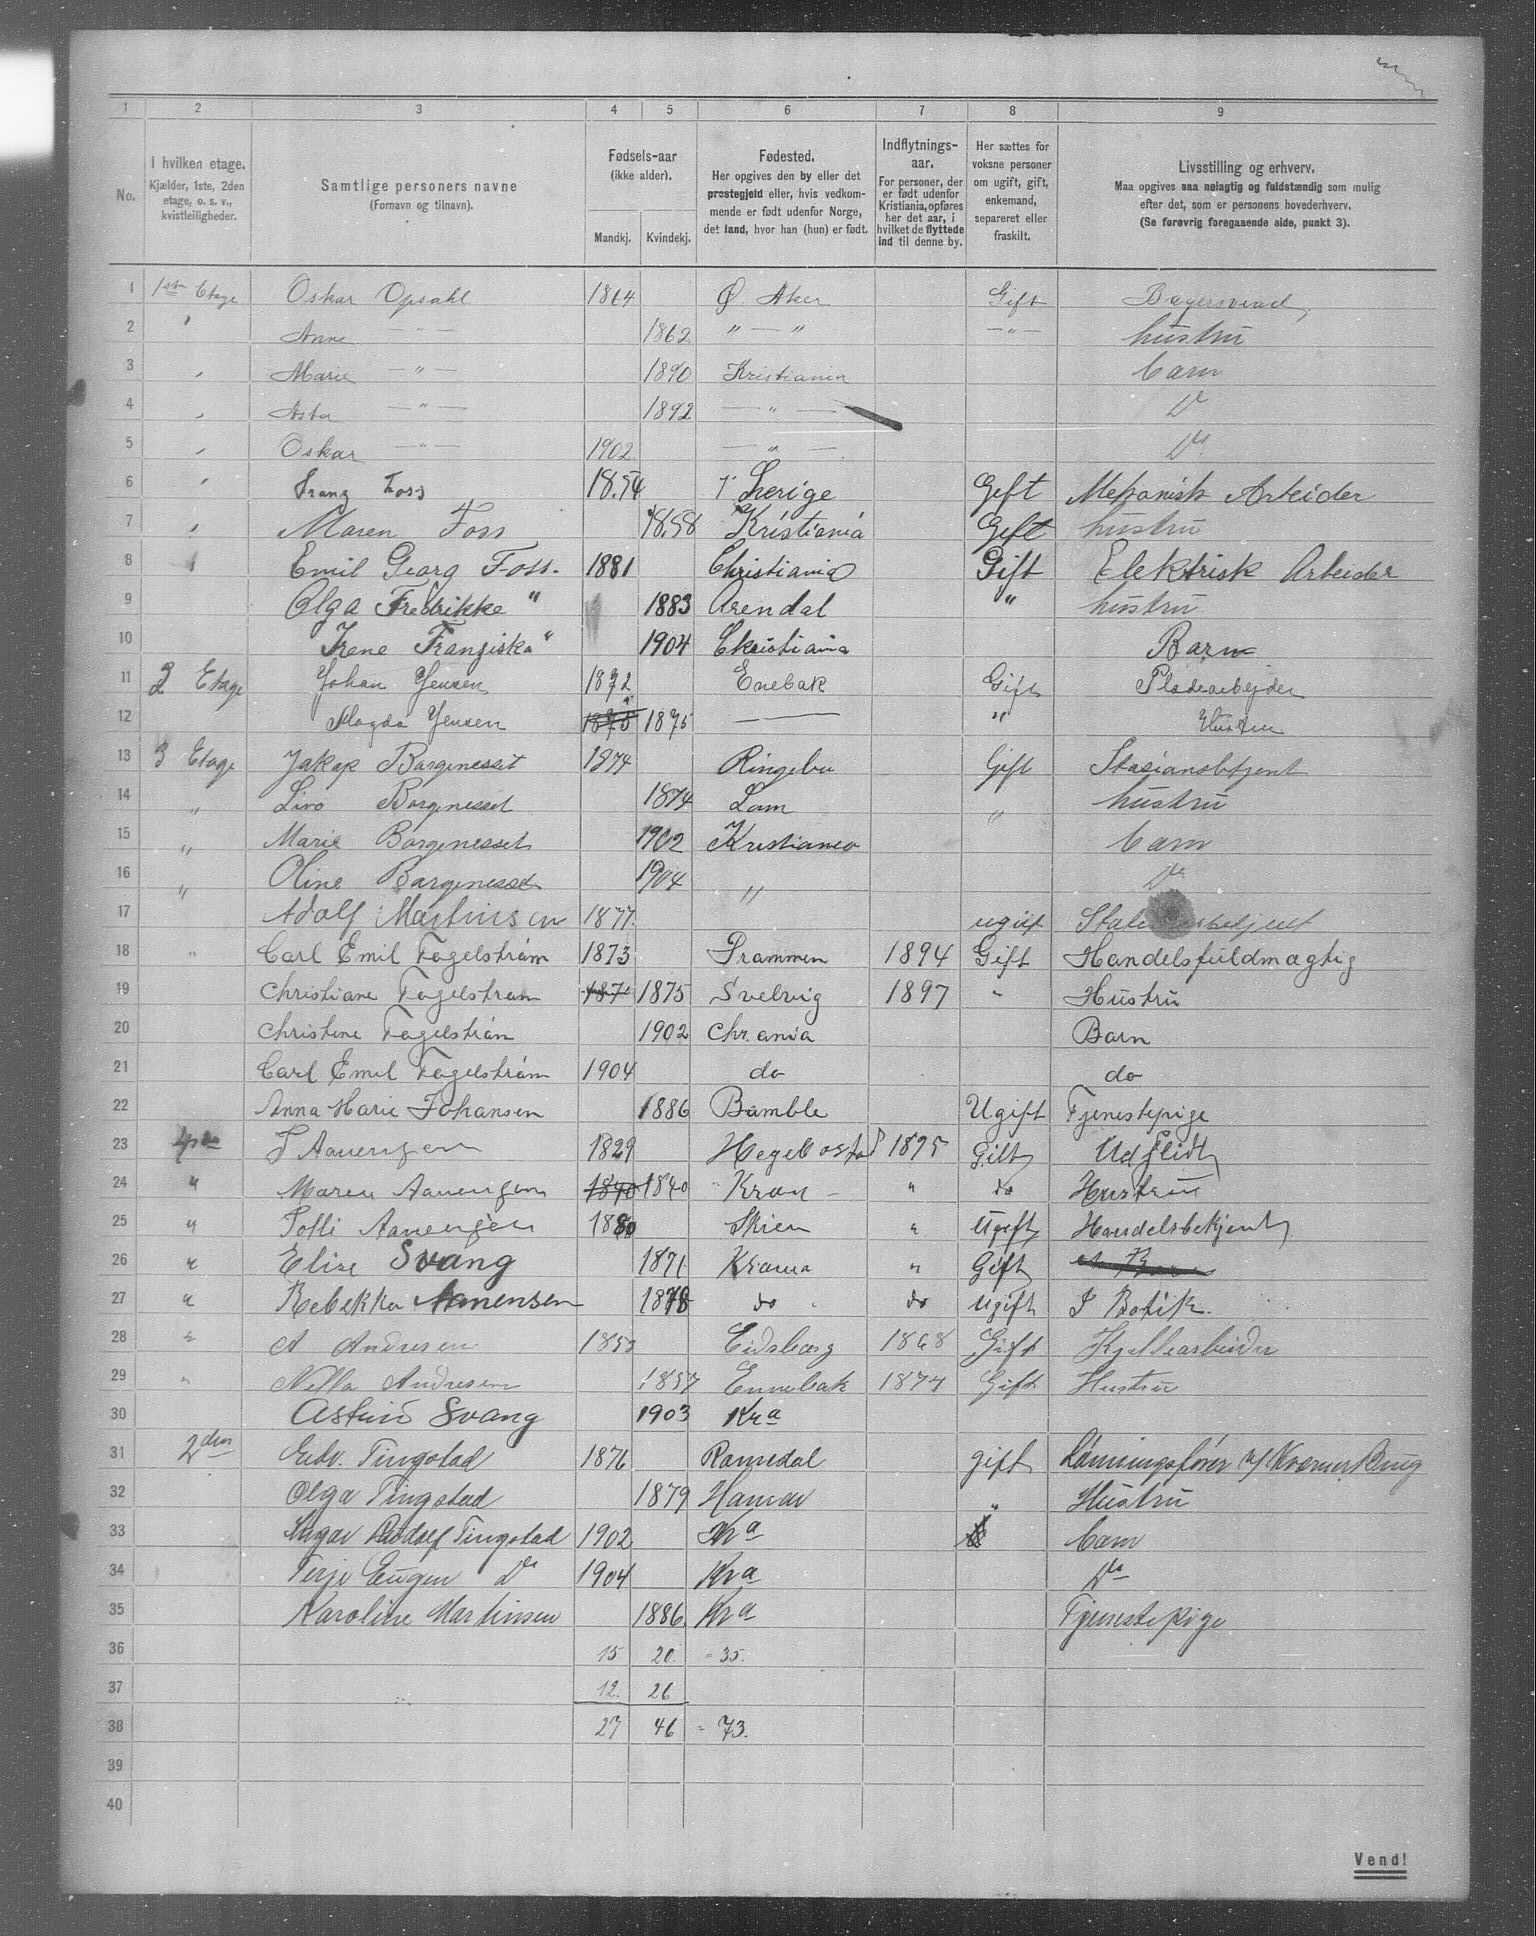 1 2 3 4 5 6 7 8 9
No. I hvilken etage. Kjælder, 1ste, 2den etage, o. s. v., kvistleiligheder. Samtlige personers navne (Fornavn og tilnavn). Fødsels-aar (ikke alder). Mandkj. Kvindekj. Fødested. Her opgives den by eller det præstegjeld eller, hvis vedkommende er født udenfor Norge, det land, hvor han (hun) er født. Indflytnings-aar. For personer, der er født udenfor Kristiania, opføres her det aar, i hvilket de flyttede ind til denne by. Her sættes for voksne personer om ugift, gift, enkemand, separeret eller fraskilt. Livsstilling og erhverv. Maa opgives saa nøiagtig og fuldstændig som mulig efter det, som er personens hovederhverv. (Se forøvrig foregaaende side, punkt 3).
1 1ste Etage Oskar Opsahl 1864 Ø. Aker Gift Bagersvend
2 " Anne —"— 1862 "—" —"— hustru
3 " Marie —"— 1890 Kristiania barn
4 " Asta —"— 1892 —"— Do
5 " Oskar —"— 1902 —"— Do
6 " Franz Foss 1854 Sverige Gift Mekanisk Arbeider
7 " Maren Foss 1858 Kristiania Gift hustru
8 " Emil Georg Foss. 1881 Christiania Gift Elektrisk Arbeider
9 Olga Fredrikke " 1883 Arendal " hustru
10 Irene Franziska " 1904 Christiania Barn
11 2 Etage Johan Jensen 1872 Enebak Gift Pladearbejder
12 Magda Jensen 1875 1875 — " Hustru
13 3 Etage Jakop Bargenesset 1874 Ringebu Gift Stasjonsbetjent
14 " Livo Bargenesset 1874 Lom " hustru
15 " Marie Bargenesset 1902 Kristiania barn
16 " Oline Bargenesset 1904 " Do
17 Adolf Martinsen 1877. ugift
18 " Carl Emil Fagelstrøm 1873 Drammen 1894 Gift Handelsfuldmægtig
19 Christiane Fagelstrøm 1871 1875 Svelvig 1897 " Hustru
20 Christine Fagelstrøm 1902 Chr.ania Barn
21 Carl Emil Fagelstrøm 1904 do do
22 Anna Marie Johansen 1886 Bamble Ugift Tjenestepige
23 4de T Aanensen 1829 Hegebostad 1895 Gift Udflidt
24 " Maren Aanensen 1840 1840 Kran " do Hustru
25 " Tolli Aanensen 1880 Skien " Ugift Handelsbetjent
26 " Elise Svang 1871 Krania " Gift
27 " Rebekka Aanensen 1878 do do ugift I Botik.
28 " A Andresen 1853 Eidsberg 1868 Gift
29 " Nella Andresen 1857 Ennebak 1874 Gift Hustru
30 Astrid Svang 1903 Kra
31 2den Edv. Tingstad 1876 Romedal gift Lønningsfører v/ Kværner Brug
32 Olga Tingstad 1879 Hamar " Hustru
33 Rudolf Tingstad 1902 Kra barn
34 Terje Eugen Do 1904 Kra Do
35 Karoline Martinsen 1886 Kra Tjenestepige
36 15 20. = 35.
37 12. 26
38 27 46 = 73.
39
40
Vend!